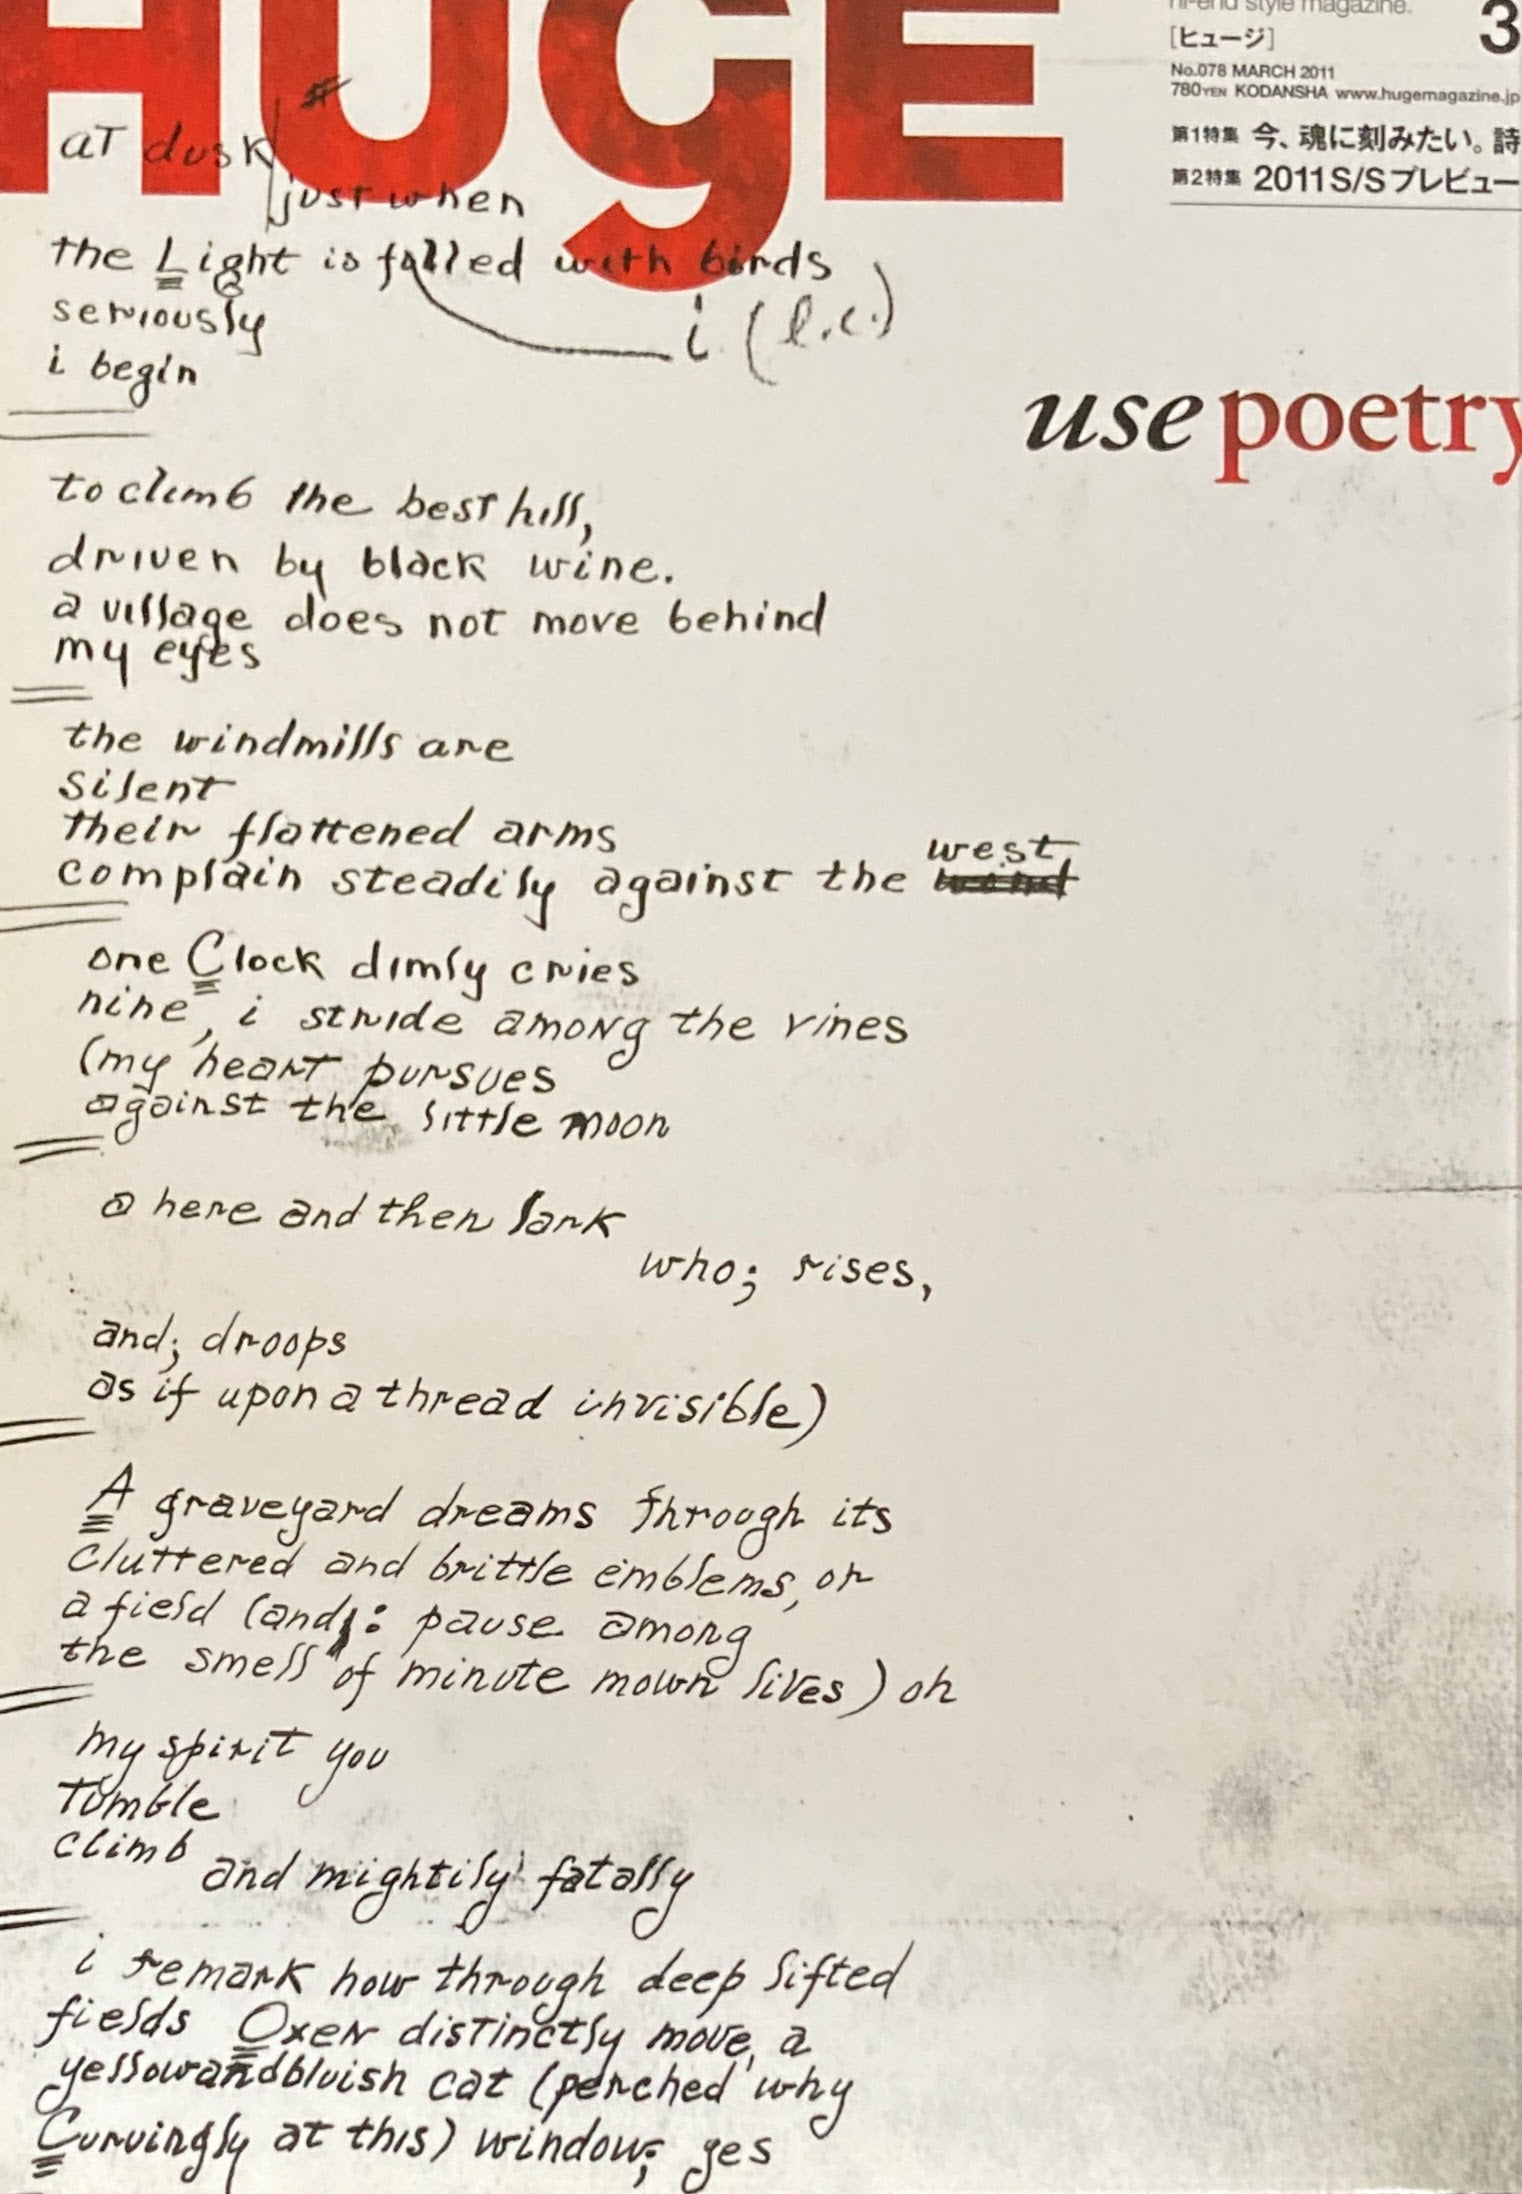 HUGE
hi-end style magazine.
[ヒュージ]
3
No.078 MARCH 2011
780YEN KODANSHA www.hugemagazine.jp
第1特集 今、魂に刻みたい。詩
第2特集 2011S/Sプレビュー
use poetry
#
at dusk
just when
the Light is filled with birds
i (l.c.)
seriously
i begin
to climb the best hill,
driven by black wine.
a village does not move behind
my eyes
the windmills are
silent
their flattened arms
complain steadily against the west
one Clock dimly cries
nine, i stride among the vines
(my heart pursues
against the little moon
a here and then lark
who; rises,
and; droops
as if upon a thread invisible)
A graveyard dreams through its
cluttered and brittle emblems, or
a field (and: pause among
the smell of minute mown lives) oh
my spirit you
tumble
climb
and mightily fatally
i remark how through deep lifted
fields Oxen distinctly move, a
yellowandbluish cat (perched why
Curvingly at this) window; yes